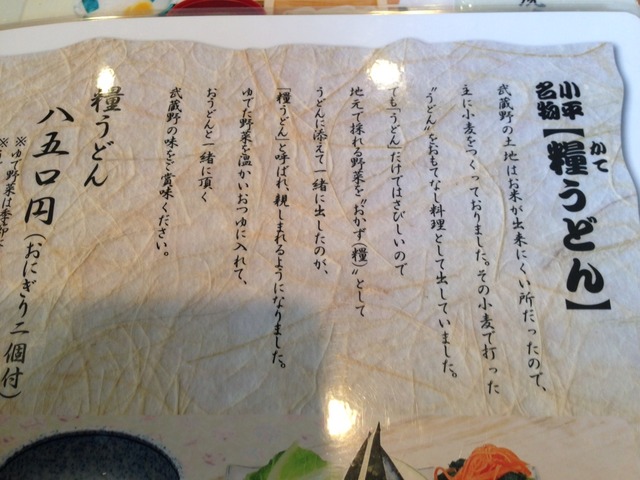 小平名物【糧うどん】
かて
武蔵野の土地はお米が出来にくい所だったので、
主に小麦をつくっておりました。その小麦で打った
"うどん"をおもてなし料理として出していました。
でも「うどん」だけではさびしいので
地元で採れる野菜を"おかず(糧)"として
うどんに添えて一緒に出したのが、
「糧うどん」と呼ばれ、親しまれるようになりました。
ゆでた野菜を温かいおつゆに入れて、
おうどんと一緒に頂く
武蔵野の味をご賞味ください。
糧うどん
八五〇円(おにぎり二個付)
※ゆで野菜は季節に